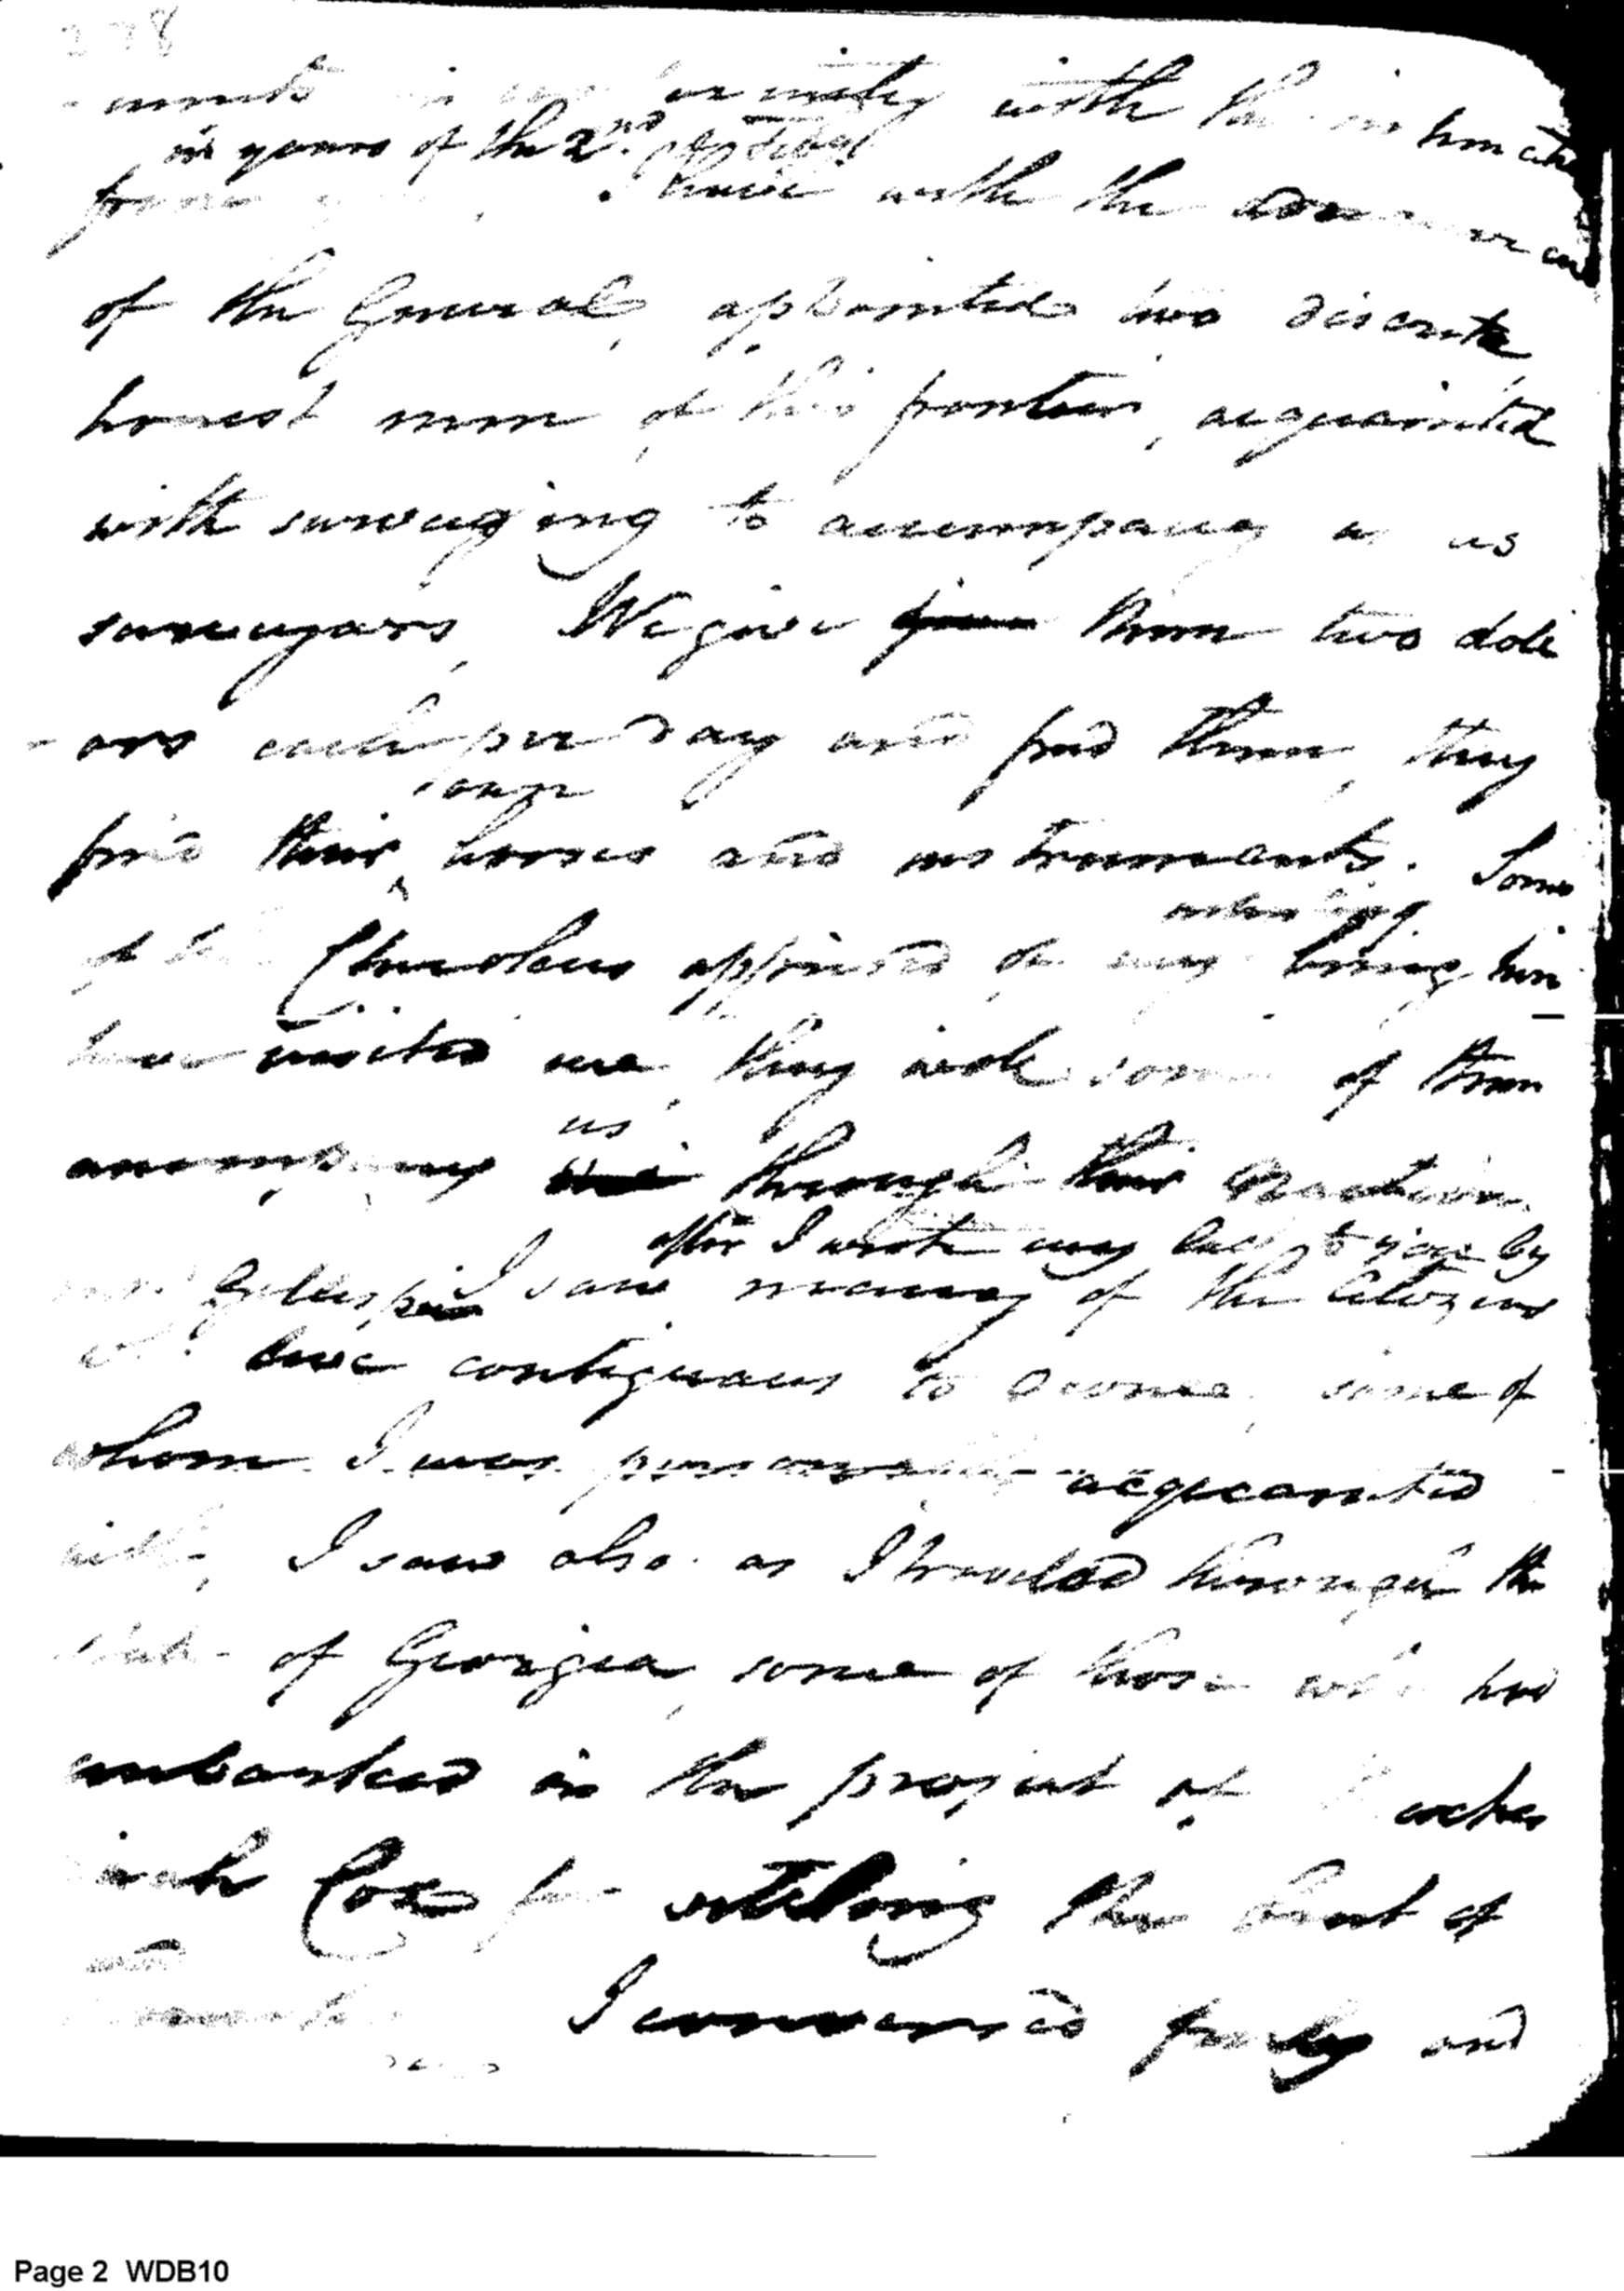 278
-ments in conformity with the intimation
in yours of the 2nd. of
from I have with the concurrence
of the General, appointed two discrete
honest men of this frontier, acquainted
with surveying to accompany us as
surveyors, We give them two doll
-ars each per day and find them, they
own
find their horses and instruments. Some
of the Cherokees apprised of my being here
have visited me, they with some of them
us
accompany through their Nation.
after I wrote my last to you by
Gillespie I saw many of the Citizens
who live contiguous to Oconee, some of
whom I was personally acquainted
with, I saw also as I traveled through the
State of Georgia, some of those who had
embarked in the project of
with Cox for settling the bent of
Tennessee I conversed freely and
Page 2 WDB10